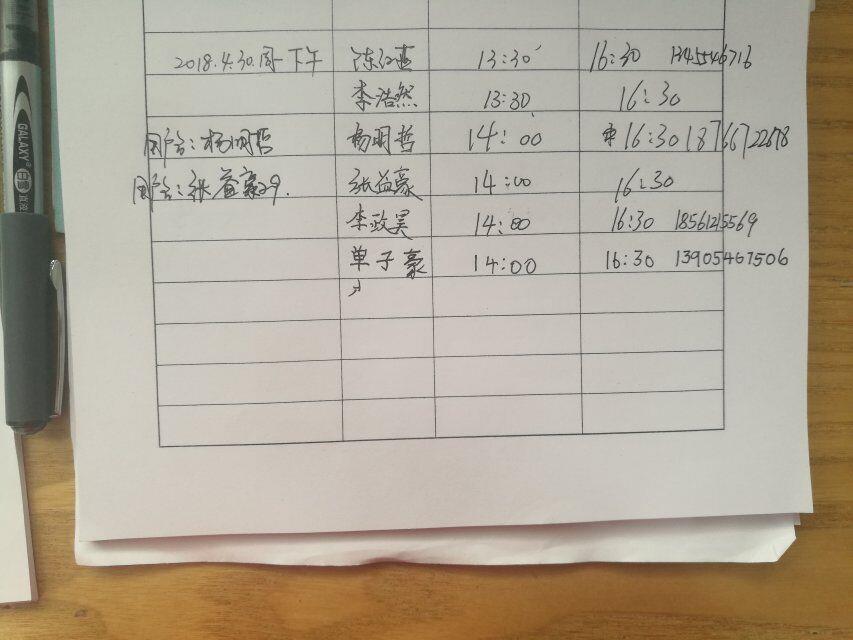 2018.4.30.周一下午 陈 13:30 16:30
李浩然 13:30 16:30
用户名:杨明哲 杨明哲 14:00 16:30 18766722878
用户名:张益豪29. 张益豪 14:00 16:30
李政昊 14:00 16:30 18561215569
单子豪 14:00 16:30 13905467506
GALAXY